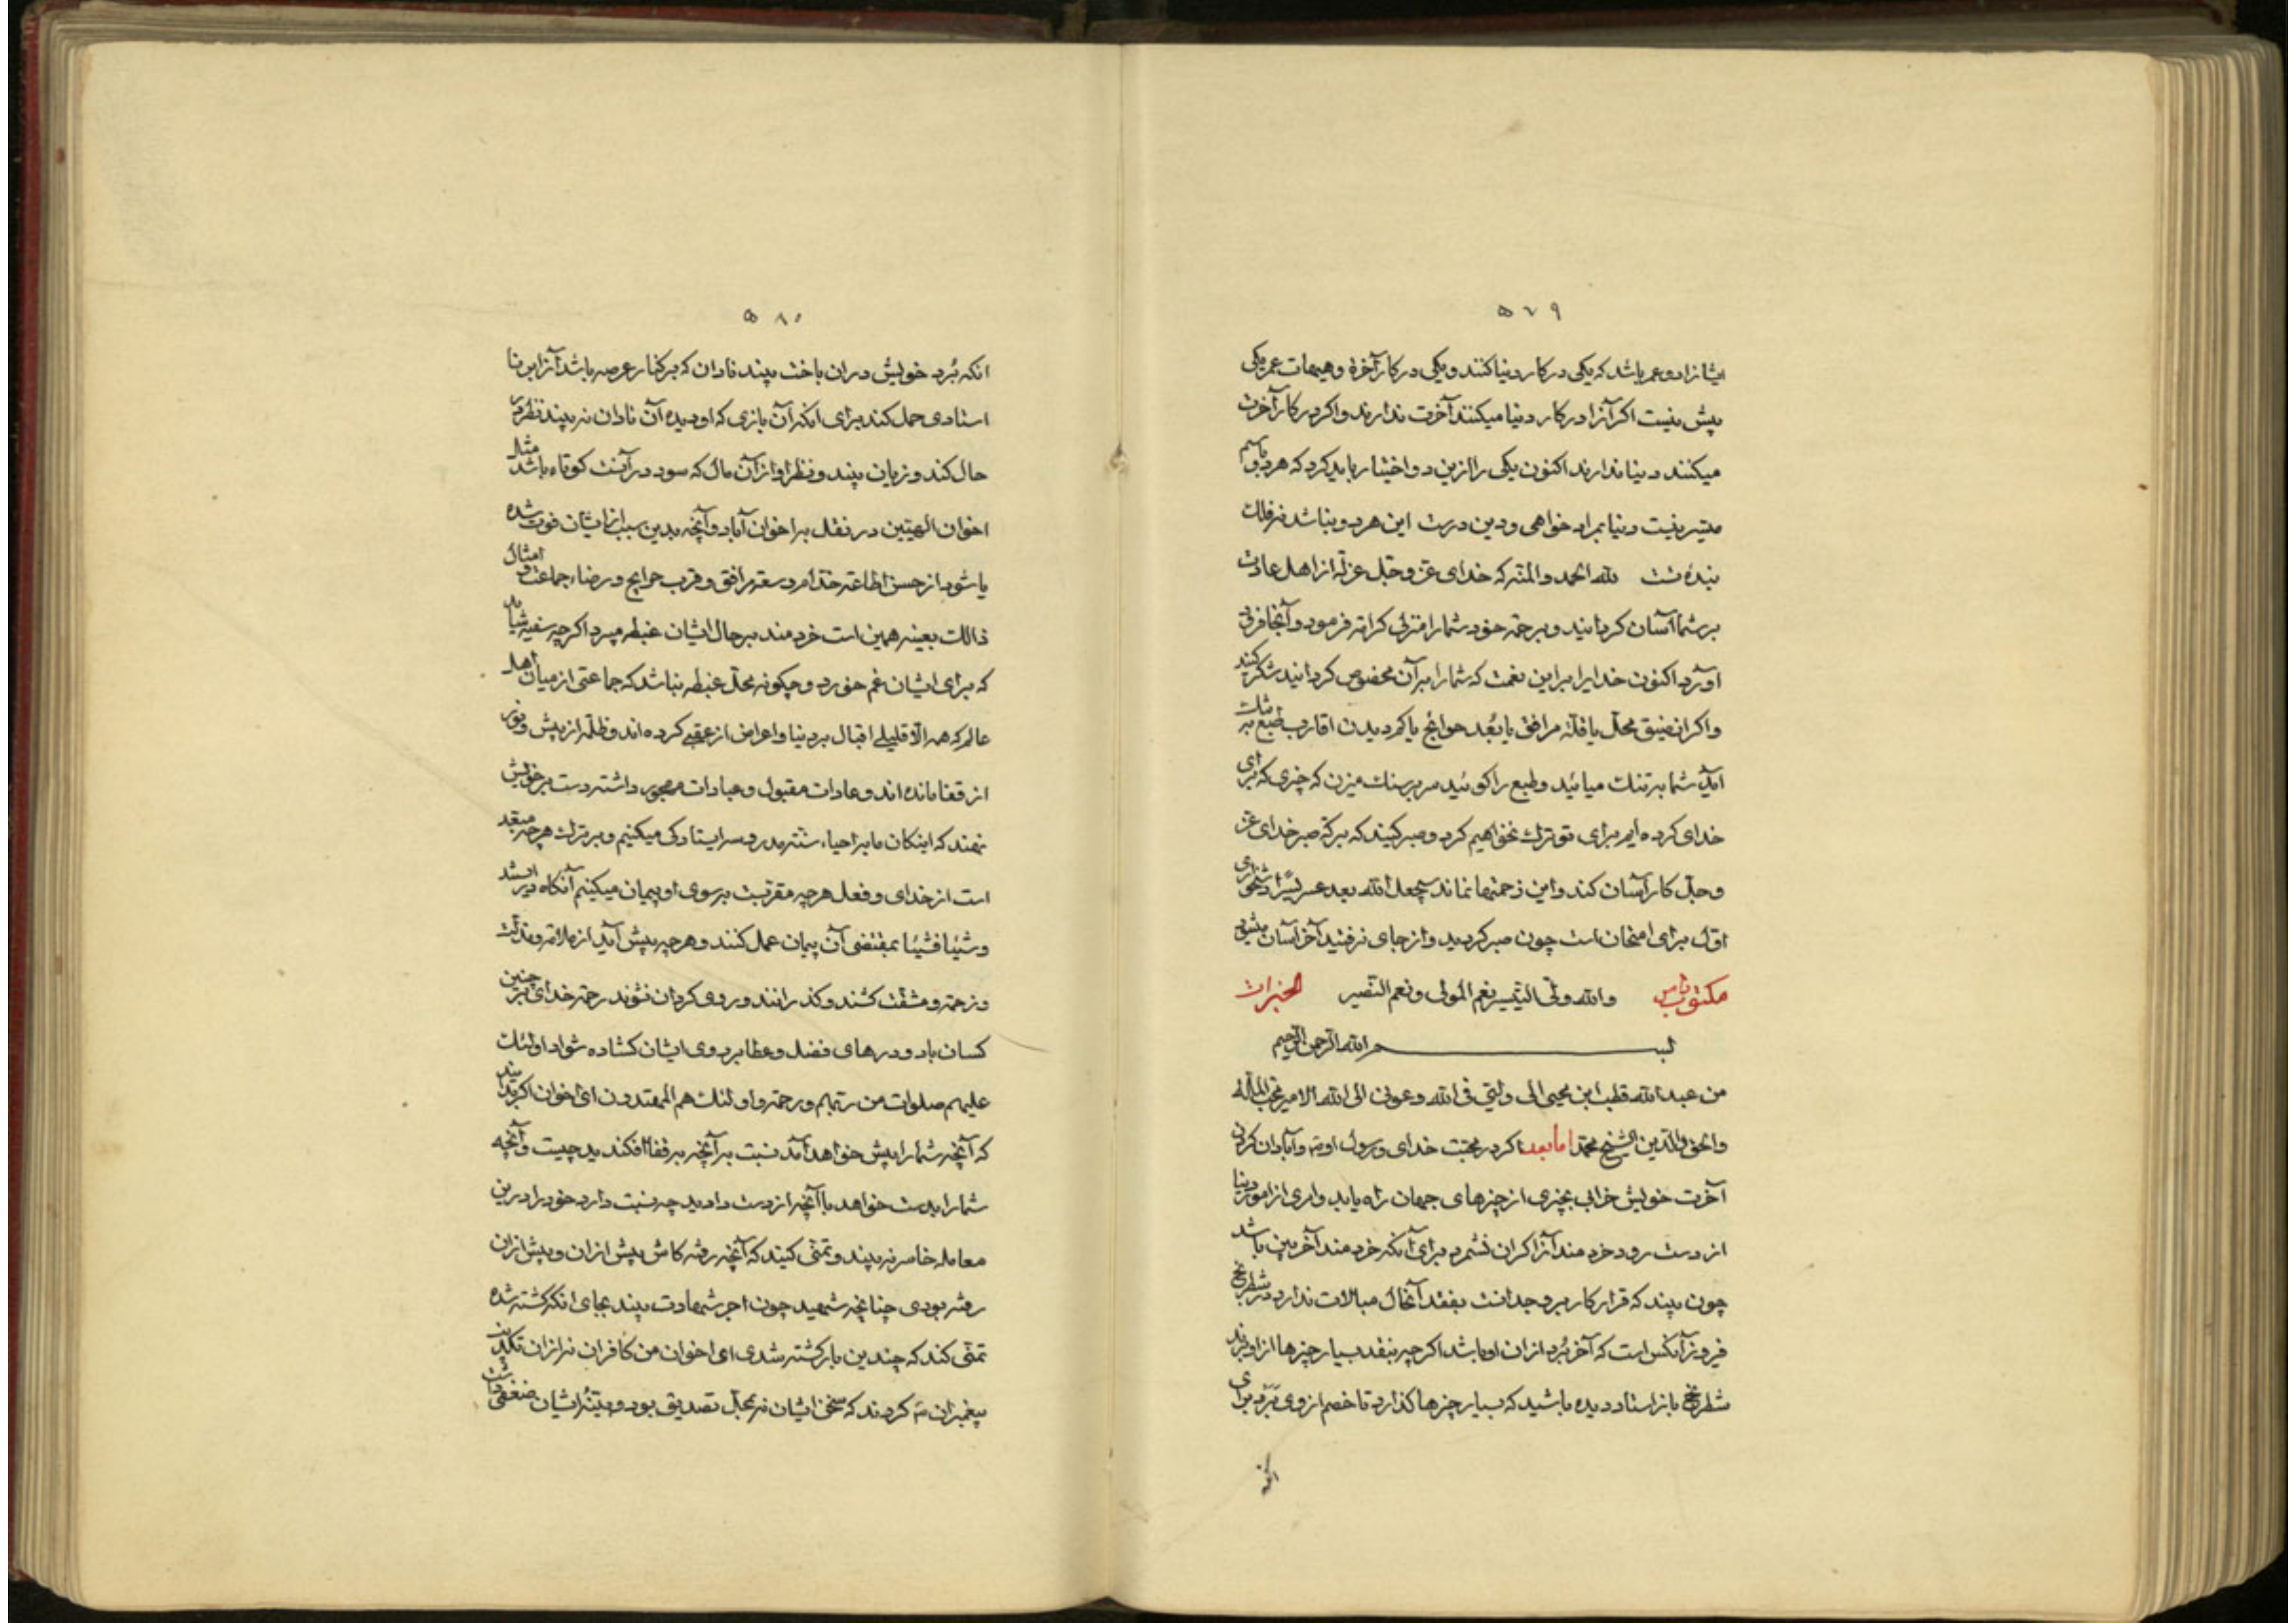 ۵۷۹
ایشانرا دو عمر باشد که یکی در کار دنیا کنند و یکی در کار آخرة و هیهات عمر یکی
بیش نیست اکر آنرا در کار دنیا میکنند آخرت ندارند و اکر در کار آخرت
میکنند دنیا ندارند اکنون یکی را ازین دو اختیار باید کرد که هر دو باهم
میسر نیست دنیا بمراد خواهی و دین درست این هر دو نباشد نه فلک
بندهٔ تست لله الحمد والمنه که خدای عز و جل عزلة از اهل عادت
بر شما آسان کردانید و برحمة خود شما را منزلی کرامة فرمود و آنجا فرود
آورد اکنون خدایرا براین نعمت که شما را بر آن مخصوص کردانید شکر کنید
و اکر از ضیق محل یا قلة مرافق یا بُعد حوائج یا کم دیدن اقارب طبع
آید شما بتنک میائید و طبع را کوئید سر بر سنک میزن که چیزی که برای
خدای کرده ایم برای تو ترک نخواهیم کرد و صبر کنید که برکة صبر خدای عز
و جل کار آسان کند و این زحمتها نماند سیجعل الله بعد عسر یسرا
اول برای امتحان است چون صبر کردید و از جای نرفتید آخر آسان
مکتوب ثامن والله ولی التیسیر نعم المولی و نعم النصیر
بسم الله الرحمن الرحیم
من عبد الله قطب ابن محیی الی ولیی فی الله و عونی الی الله الامیر
والحق والدین الشیخ محمد اما بعد اکر در محبت خدای و رسول او و آبادان کردن
آخرت خویش خرابی بچیزی از چیزهای جهان راه یابد و امری از امور دنیا
از دست رود خردمند آنرا کران نشمرد برای آنکه خردمند آخربین باشد
چون بیند که قرار کار بر بردجدانست بفقد آنحال مبالات ندارد در شطرنج
فیروز آنکس است که آخر بُرد از ان او باشد اکرچه بنقد بسیار چیزها از او برند
شطرنج باز استاد دیده باشید که بسیار چیزها کذارد تا خصم از وی بَرَد برای
انکه
۵۸۰
انکه بُرد خویش در ان باخت بیند نادان که بر کنار عرصه باشد آنرا بر نا
استادی حمل کند برای انکه آن بازی که او دیده آن نادان نه بیند نظر در
حال کند و زیان بیند و نظر او از آن مال که سود در آنست کوتاه باشد مثال
اخوان الهیین در نقل باخوان آباد و آنچه بدین سبب از ایشان فوت شده
یا شود از حسن اطاعة خدم و سعة مرافق و قرب حوایج و رضاء جماعت و امثال
ذالک بعینه همین است خردمند بر حال ایشان غبطه میبرد اکرچه سفیه
که برای ایشان غم خورد و چکونه محل غبطه نباشد که جماعتی از میان اهل
عالم که همه الا قلیلی اقبال بر دنیا و اعراض از عقبی کرده اند و ظلمة از پیش و نور
از قفا مانده اند و عادات مقبول و عبادات مهجور داشته دست بر خویش
نهند که اینکان ما بر احیاء سنته مدروسه ایستادکی میکنیم و بر ترک هرچه مبعد
است از خدای و فعل هرچه مقربست بسوی او پیمان میکنیم آنکاه در ایستند
و شیئا فشیئا بمقتضی آن پیمان عمل کنند و هرچه پیش آید از ملامة و مذلت
و زحمة و مشقت کشند و کذرانند و روی کردان نشوند رحمة خدای بر چنین
کسان باد و درهای فضل و عطا بر روی ایشان کشاده شواد اولئک
علیهم صلوات من ربهم و رحمة و اولئک هم المهتدون ای اخوان اکر بدانید
که آنچه شما را پیش خواهد آمد نسبت بر آنچه بر قفا افکندید چیست و آنچه
شما را بدست خواهد با آنچه از دست دادید چه نسبت دارد خود را درین
معامله خاسر نه بیند و تمنی کنید که آنچه رفته کاش پیش ازان و بیش ازان
رفته بودی چنانچه شهید چون اجر شهادت بیند بجای انکه کشته شده
تمنی کند که چندین بار کشته شدی ای اخوان من کافران نه ازان تکذیب
پیغمبران کردند که سخن ایشان نه بمحل تصدیق بود و بینهٔ ایشان ضعفی داشت